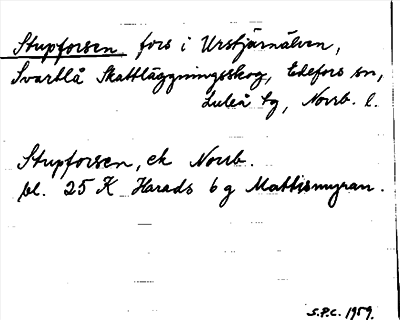 Stupforsen fors i Urstjärnälven,
Svartlå Skattläggningsskog, Edefors sn,
Luleå tg, Norrb. l.
Stupforsen, ek Norrb.
bl. 25 K Harads 6 g Mattismyran.
S.P.C. 1959.